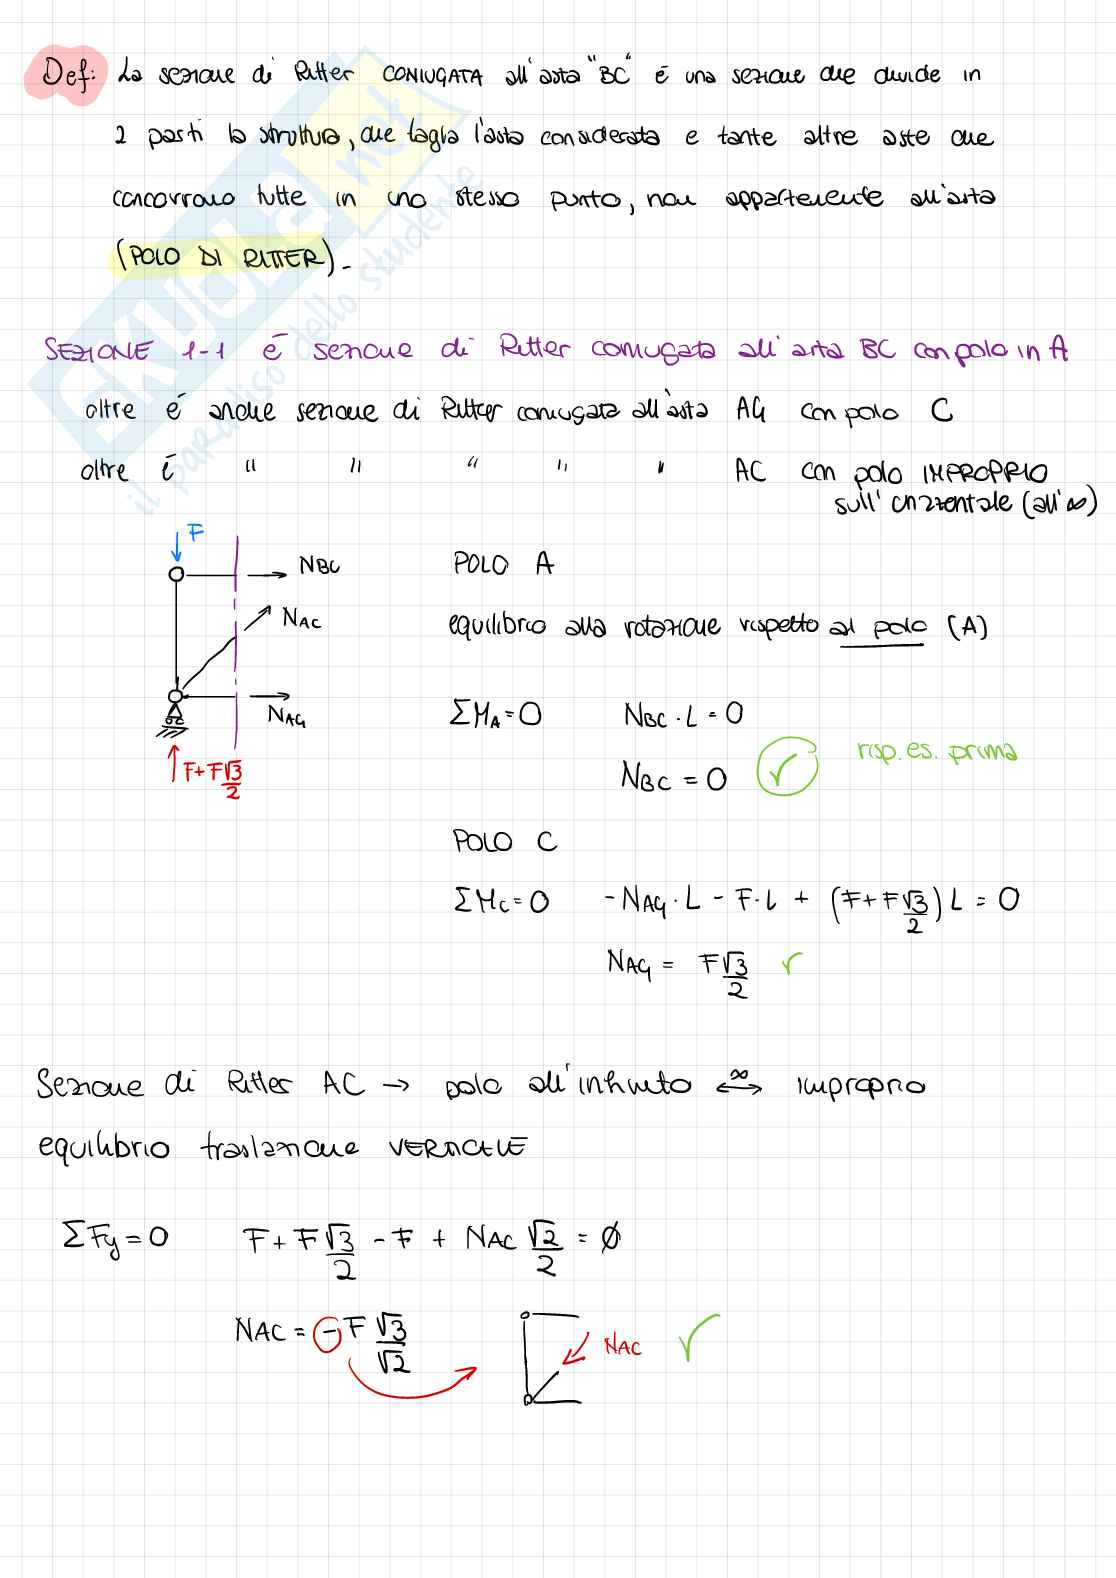 Def: La sezione di Ritter CONIUGATA all'asta "BC" é una sezione che divide in
2 parti la struttura, che taglia l'asta considerata e tante altre aste che
concorrono tutte in uno stesso punto, non appartenente all'asta
(POLO DI RITTER).
SEZIONE 1-1 é sezione di Ritter coniugata all'asta BC con polo in A
oltre é anche sezione di Ritter coniugata all'asta AG con polo C
oltre é " " " " " AC con polo IMPROPRIO
sull'orizzontale (all'∞)
F
NBC
POLO A
NAC
equilibrio alla rotazione rispetto al polo (A)
NAG
ΣMA=0 NBC · L = 0
F+F√3/2
NBC = 0 ✓ risp. es. prima
POLO C
ΣMC=0 -NAG · L - F · L + (F+F√3/2) L = 0
NAG = F√3/2 ✓
Sezione di Ritter AC → polo all'infinito ⟷∞ improprio
equilibrio traslazione VERTICALE
ΣFy=0 F+F√3/2 - F + NAC √2/2 = ∅
NAC = -F √3/√2 NAC ✓
SKUOLA.net
il paradiso dello studente